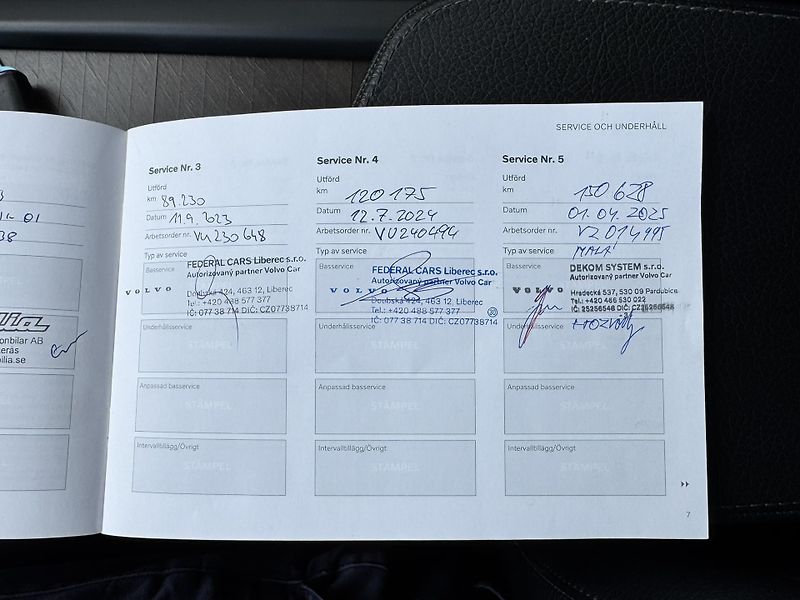 01
38
onbilar AB
erås
bilia.se
SERVICE OCH UNDERHÅLL
Service Nr. 3
Utförd
km 89.230
Datum 11.9.2023
Arbetsorder nr. VU230648
Typ av service
Basservice
VOLVO
FEDERAL CARS Liberec s.r.o.
Autorizovaný partner Volvo Car
Doubská 424, 463 12, Liberec
Tel.: +420 488 577 377
IČ: 077 38 714 DIČ: CZ07738714
Underhållsservice
STÄMPEL
Anpassad basservice
STÄMPEL
Intervalltillägg/Övrigt
STÄMPEL
Service Nr. 4
Utförd
km 120 175
Datum 12.7.2024
Arbetsorder nr. VU240494
Typ av service
Basservice
VOLVO
FEDERAL CARS Liberec s.r.o.
Autorizovaný partner Volvo Car
Doubská 424, 463 12, Liberec
Tel.: +420 488 577 377
IČ: 077 38 714 DIČ: CZ07738714
Underhållsservice
STÄMPEL
Anpassad basservice
STÄMPEL
Intervalltillägg/Övrigt
STÄMPEL
Service Nr. 5
Utförd
km 150 628
Datum 01.04.2025
Arbetsorder nr. VZ014995
Typ av service MALÁ
Basservice
VOLVO
DEKOM SYSTEM s.r.o.
Autorizovaný partner Volvo Car
Hradecká 537, 530 09 Pardubice
Tel.: +420 466 530 022
IČ: 25256546 DIČ: CZ25256546
Underhållsservice
Anpassad basservice
STÄMPEL
Intervalltillägg/Övrigt
STÄMPEL
7